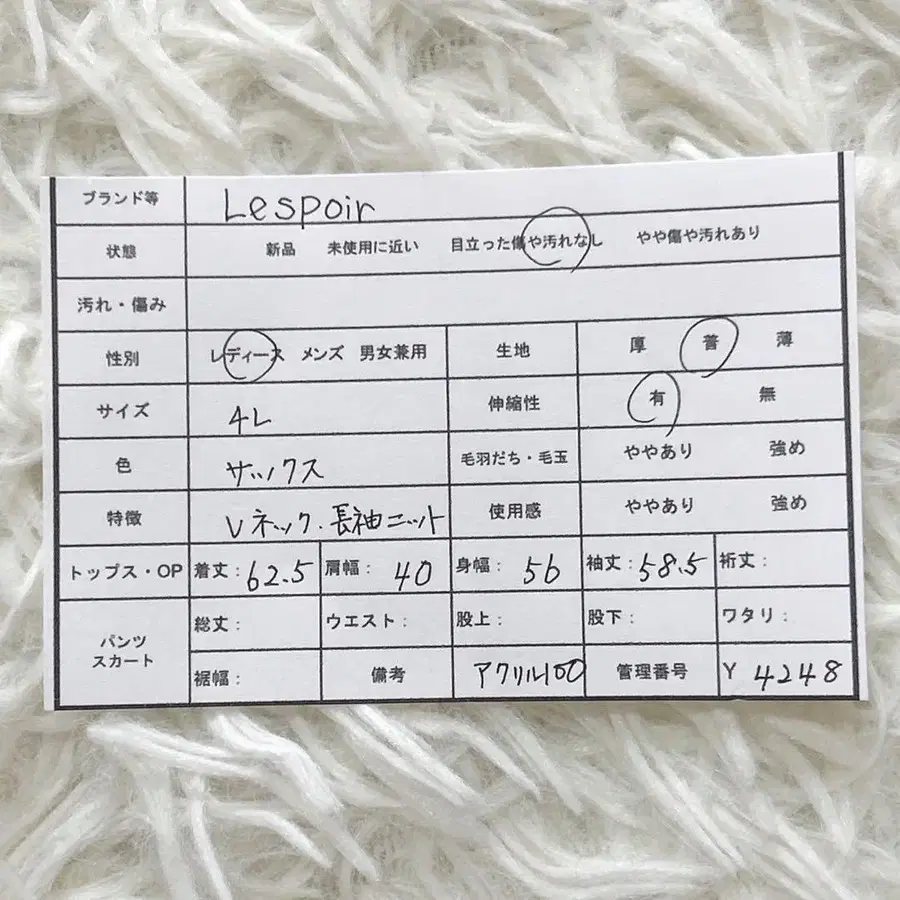 ブランド等 Lespoir
状態 新品 未使用に近い 目立った傷や汚れなし やや傷や汚れあり
汚れ・傷み
性別 レディース メンズ 男女兼用 生地 厚 普 薄
サイズ 4L 伸縮性 有 無
色 サックス 毛羽だち・毛玉 ややあり 強め
特徴 Vネック.長袖ニット 使用感 ややあり 強め
トップス・OP 着丈: 62.5 肩幅: 40 身幅: 56 袖丈: 58.5 裄丈:
パンツ スカート 総丈: ウエスト: 股上: 股下: ワタリ:
裾幅: 備考 アクリル100 管理番号 Y 4248